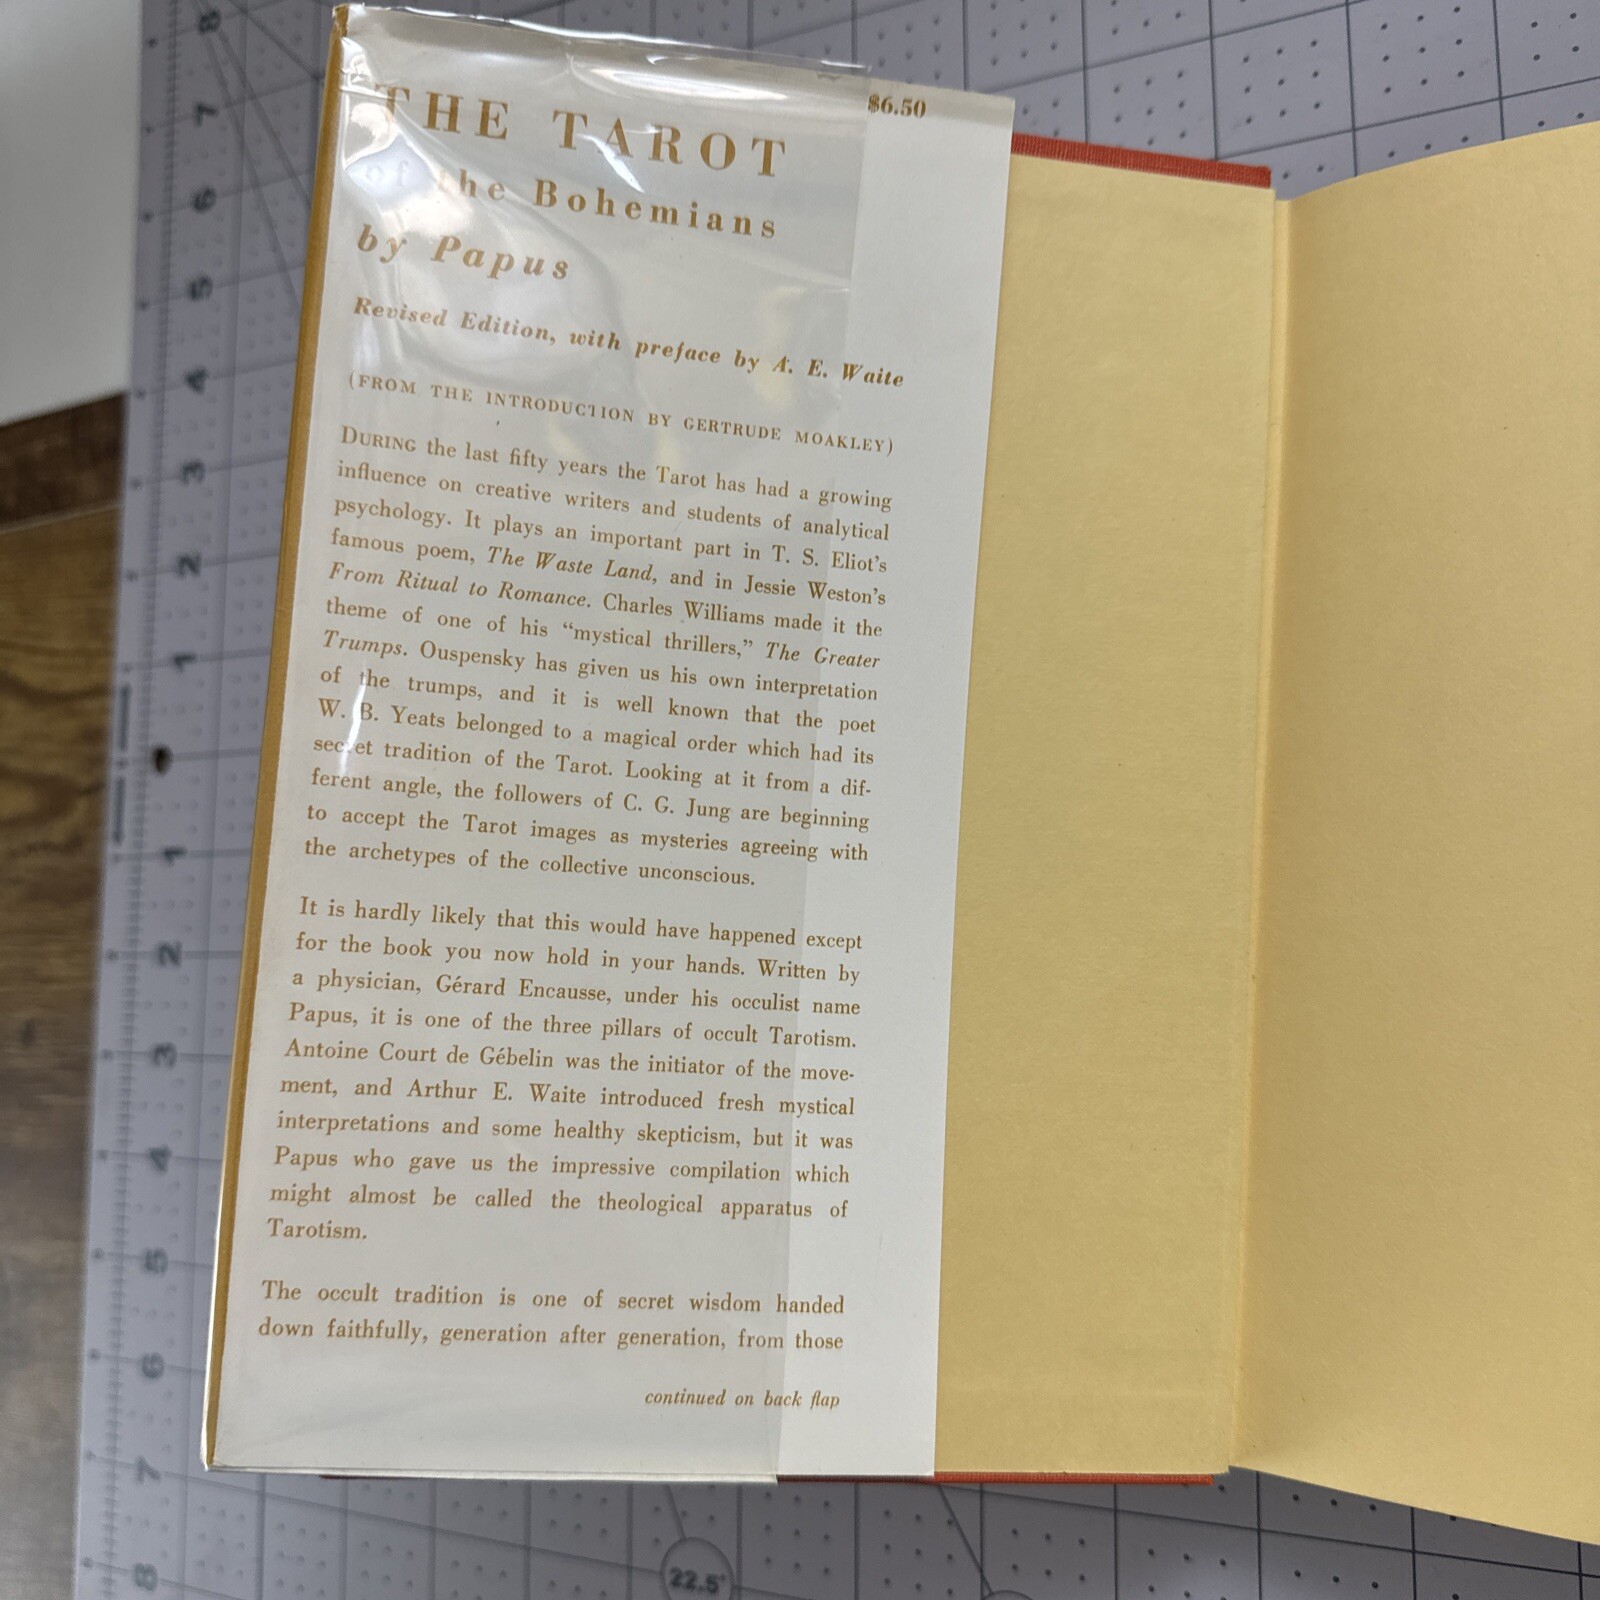 $6.50
THE TAROT
of the Bohemians
by Papus
Revised Edition, with preface by A. E. Waite
(FROM THE INTRODUCTION BY GERTRUDE MOAKLEY)
DURING the last fifty years the Tarot has had a growing
influence on creative writers and students of analytical
psychology. It plays an important part in T. S. Eliot's
famous poem, The Waste Land, and in Jessie Weston's
From Ritual to Romance. Charles Williams made it the
theme of one of his “mystical thrillers,” The Greater
Trumps. Ouspensky has given us his own interpretation
of the trumps, and it is well known that the poet
W. B. Yeats belonged to a magical order which had its
secret tradition of the Tarot. Looking at it from a dif-
ferent angle, the followers of C. G. Jung are beginning
to accept the Tarot images as mysteries agreeing with
the archetypes of the collective unconscious.
It is hardly likely that this would have happened except
for the book you now hold in your hands. Written by
a physician, Gérard Encausse, under his occulist name
Papus, it is one of the three pillars of occult Tarotism.
Antoine Court de Gébelin was the initiator of the move-
ment, and Arthur E. Waite introduced fresh mystical
interpretations and some healthy skepticism, but it was
Papus who gave us the impressive compilation which
might almost be called the theological apparatus of
Tarotism.
The occult tradition is one of secret wisdom handed
down faithfully, generation after generation, from those
continued on back flap
8
7
6
5
4
3
2
1
1
2
3
4
5
6
7
8
22.5°